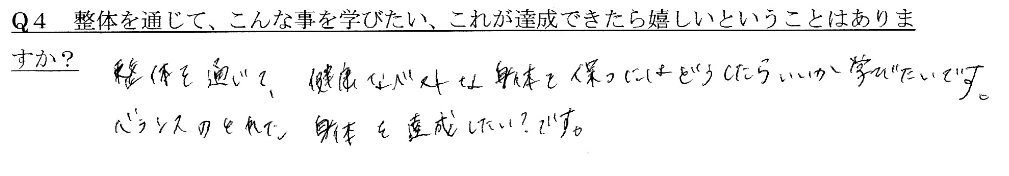 Q4 整体を通じて、こんな事を学びたい、これが達成できたら嬉しいということはありま
すか?
整体を通じて、健康なベストな身体を保つにはどうしたらいいか学びたいです。
バランスのとれた身体を達成したい?です。